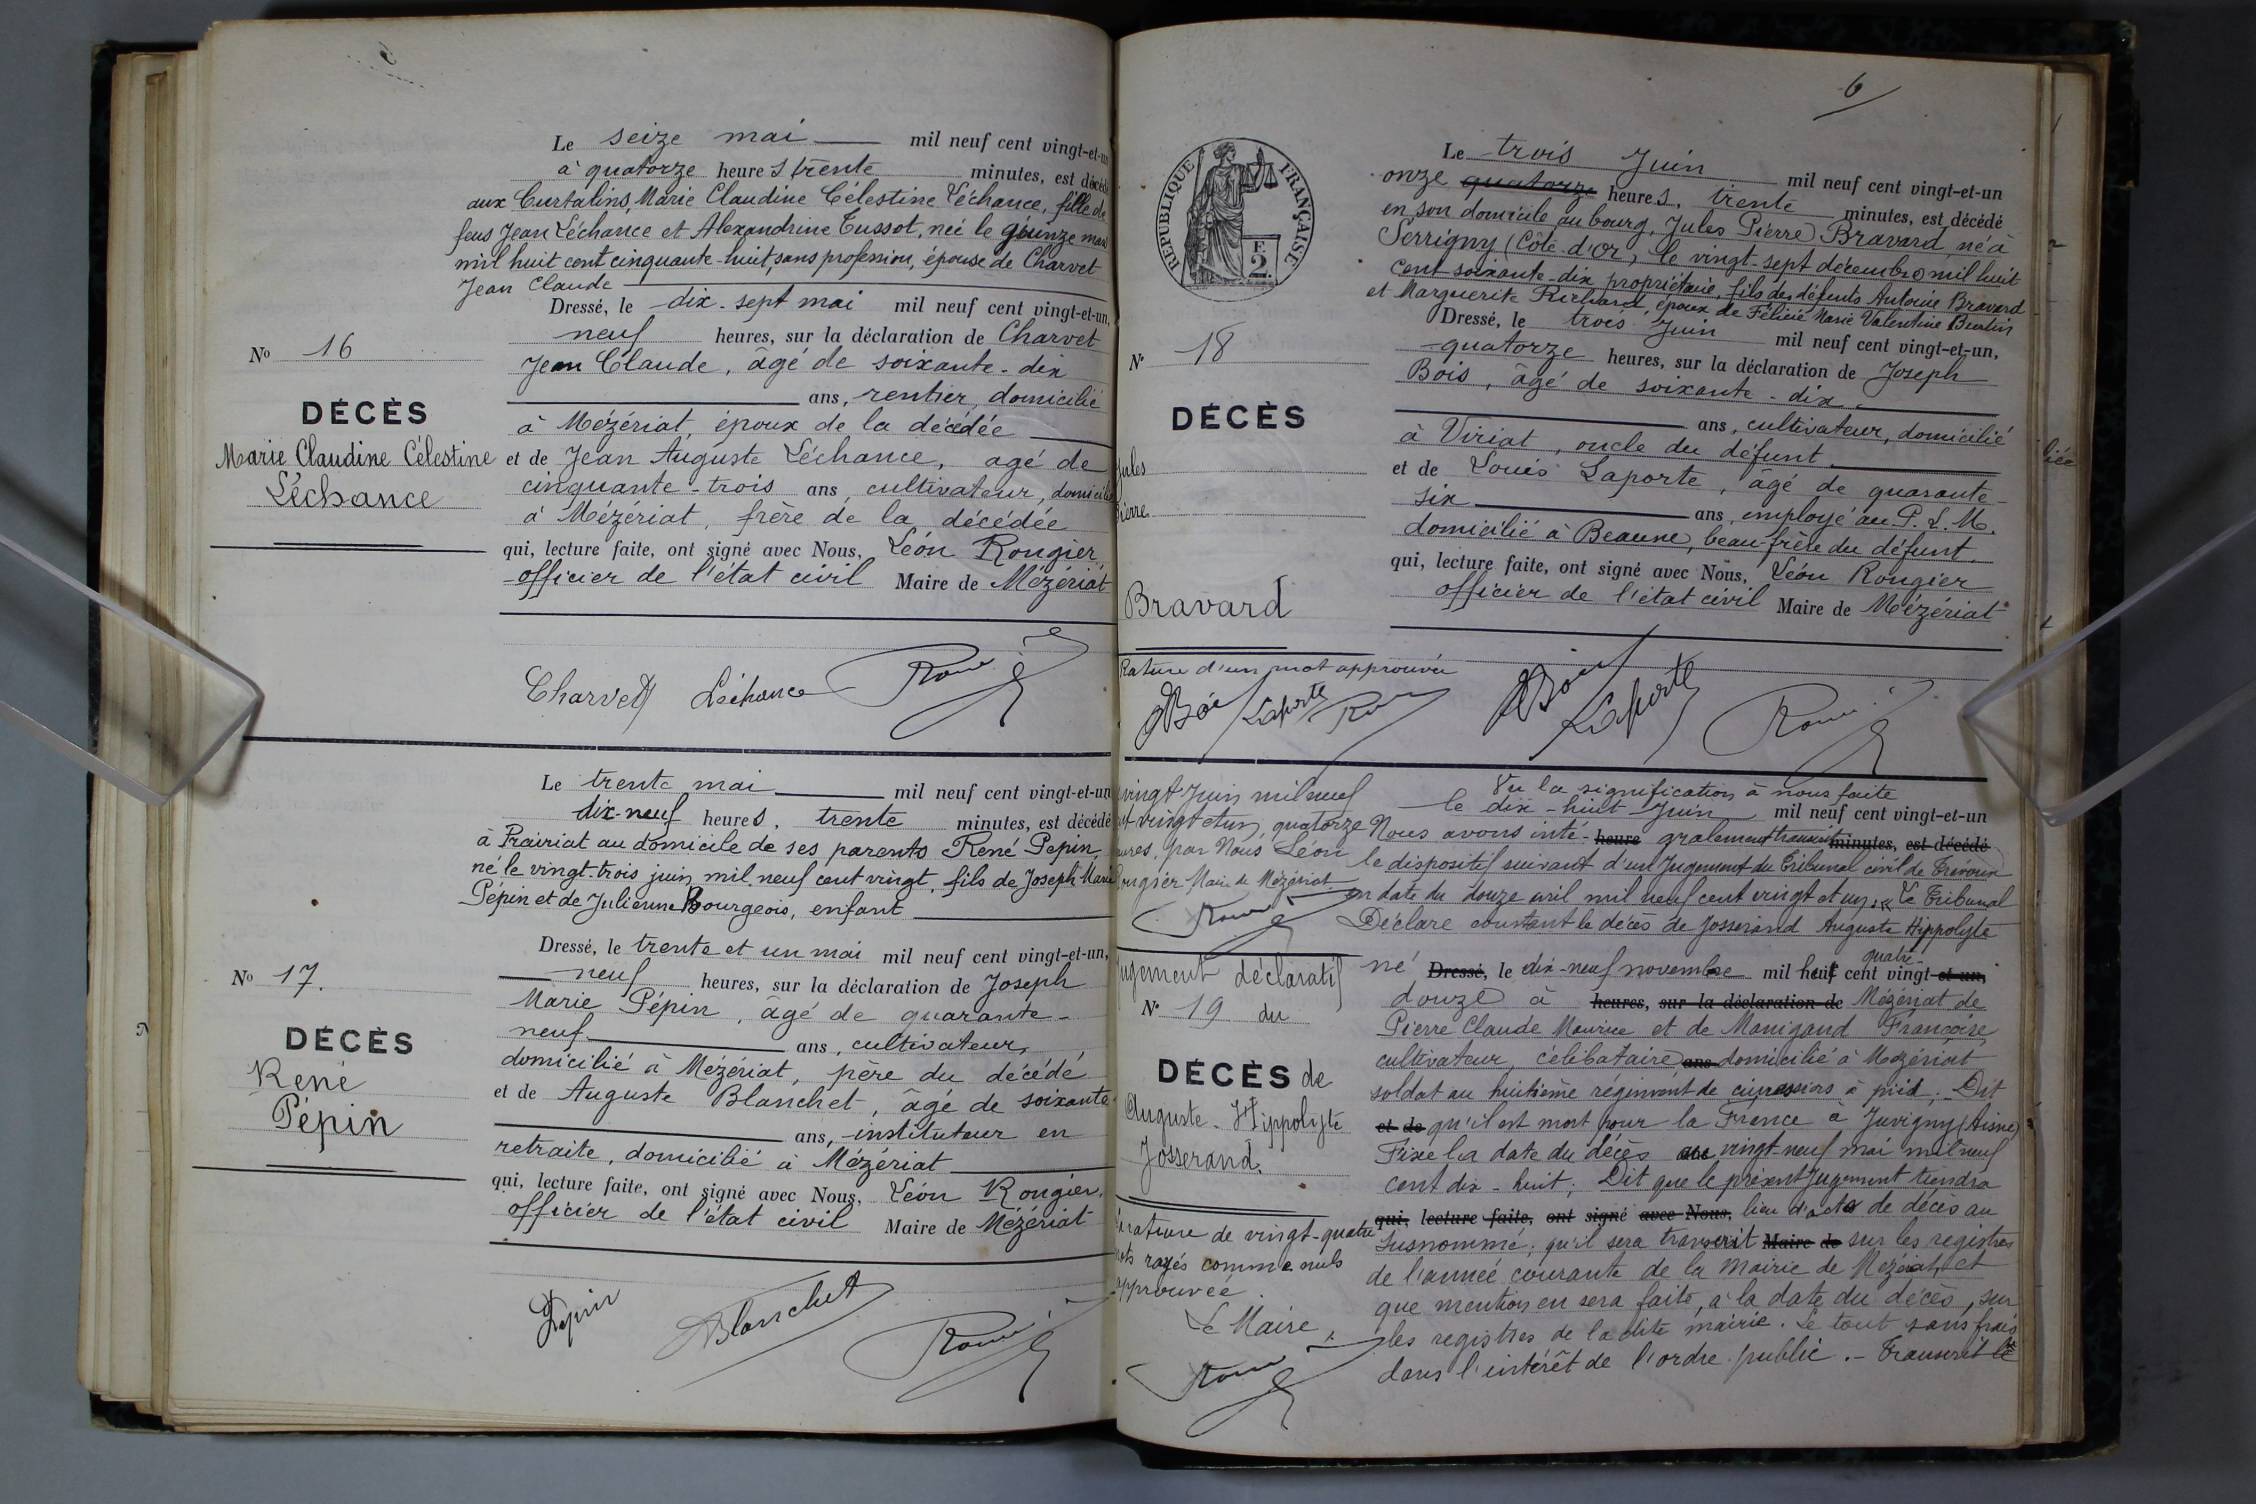 Le seize mai mil neuf cent vingt-et-un
à quatorze heures trente minutes, est décédé
aux Curtalins, Marie Claudine Célestine Léchance, fille de
feus Jean Léchance et Alexandrine Tussot, née le quinze mars
mil huit cent cinquante-huit, sans profession, épouse de Charvet
Jean Claude
Dressé, le dix-sept mai mil neuf cent vingt-et-un,
neuf heures, sur la déclaration de Charvet
No 16
Jean Claude, âgé de soixante-dix
ans, rentier, domicilié
DÉCÈS
à Mézériat, époux de la décédée
Marie Claudine Célestine
et de Jean Auguste Léchance, agé de
Léchance
cinquante-trois ans, cultivateur, domicilié
à Mézériat, frère de la décédée
qui, lecture faite, ont signé avec Nous, Léon Rougier,
officier de l'état civil Maire de Mézériat
Charvet Léchance
Le trente mai mil neuf cent vingt-et-un
dix-neuf heures, trente minutes, est décédé
à Prairiat au domicile de ses parents René Pepin,
né le vingt-trois juin mil neuf cent vingt, fils de Joseph Marie
Pépin et de Julienne Bourgeois, enfant
Dressé, le trente et un mai mil neuf cent vingt-et-un,
neuf heures, sur la déclaration de Joseph
No 17.
Marie Pépin, âgé de quarante-
neuf ans, cultivateur,
DÉCÈS
domicilié à Mézériat, père du décédé
René
et de Auguste Blanchet, âgé de soixante
Pépin
ans, instituteur en
retraite, domicilié à Mézériat
qui, lecture faite, ont signé avec Nous, Léon Rougier,
officier de l'état civil Maire de Mézériat
Pépin Blanchet
6
RÉPUBLIQUE FRANÇAISE
F.
2.
Le trois Juin mil neuf cent vingt-et-un
onze quatorze heures, trente minutes, est décédé
en son domicile au bourg, Jules Pierre Bravard, né à
Serrigny (Côte-d'Or), le vingt-sept décembre mil huit
cent soixante-dix, propriétaire, fils des défunts Antoine Bravard
et Marguerite Richard, époux de Félicie Marie Valentine
Dressé, le trois Juin mil neuf cent vingt-et-un,
quatorze heures, sur la déclaration de Joseph
No 18
Bois, âgé de soixante-dix
ans, cultivateur, domicilié
DÉCÈS
à Viriat, oncle du défunt
Jules
et de Louis Laporte, âgé de quarante-
Pierre
six ans, employé au P. L. M.
domicilié à Beaune, beau-frère du défunt.
qui, lecture faite, ont signé avec Nous, Léon Rougier
officier de l'état civil Maire de Mézériat
Bravard
Rature d'un mot approuvée
Bois Laporte
Bois Laporte
Vu la signification à nous faite
le dix-huit Juin mil neuf cent vingt-et-un
Nous avons inté- heure gralement transcrit minutes, est décédé
le dispositif suivant d'un Jugement du Tribunal civil de Trévoux
en date du douze avril mil neuf cent vingt et un. « Le Tribunal
Déclare constant le décès de Josserand Auguste Hippolyte
né Dressé, le dix-neuf novembre mil huit cent quatre-vingt-et-un,
douze à heures, sur la déclaration de Mézériat de
Pierre Claude Maurice et de Manigand Françoise,
cultivateur, célibataire ans domicilié à Mézériat
soldat au huitième régiment de cuirassiers à pied. Dit
et de qu'il est mort pour la France à Juvigny (Aisne)
Fixe la date du décès au vingt-neuf mai mil neuf
cent dix-huit; Dit que le présent Jugement tiendra
qui, lecture faite, ont signé avec Nous, lieu d'acte de décès au
susnommé; qu'il sera transcrit Maire de sur les registres
de l'année courante de la mairie de Mézériat, et
que mention en sera faite, à la date du décès, sur
les registres de la dite mairie. Le tout sans frais
dans l'intérêt de l'ordre public.- Transcrit le
vingt Juin mil neuf
cent vingt et un, quatorze
heures, par Nous Léon
Rougier Maire de Mézériat
Jugement déclaratif
No 19 du
DÉCÈS de
Auguste-Hippolyte
Josserand.
rature de vingt-quatre
mots rayés comme nuls
approuvée.
Le Maire,